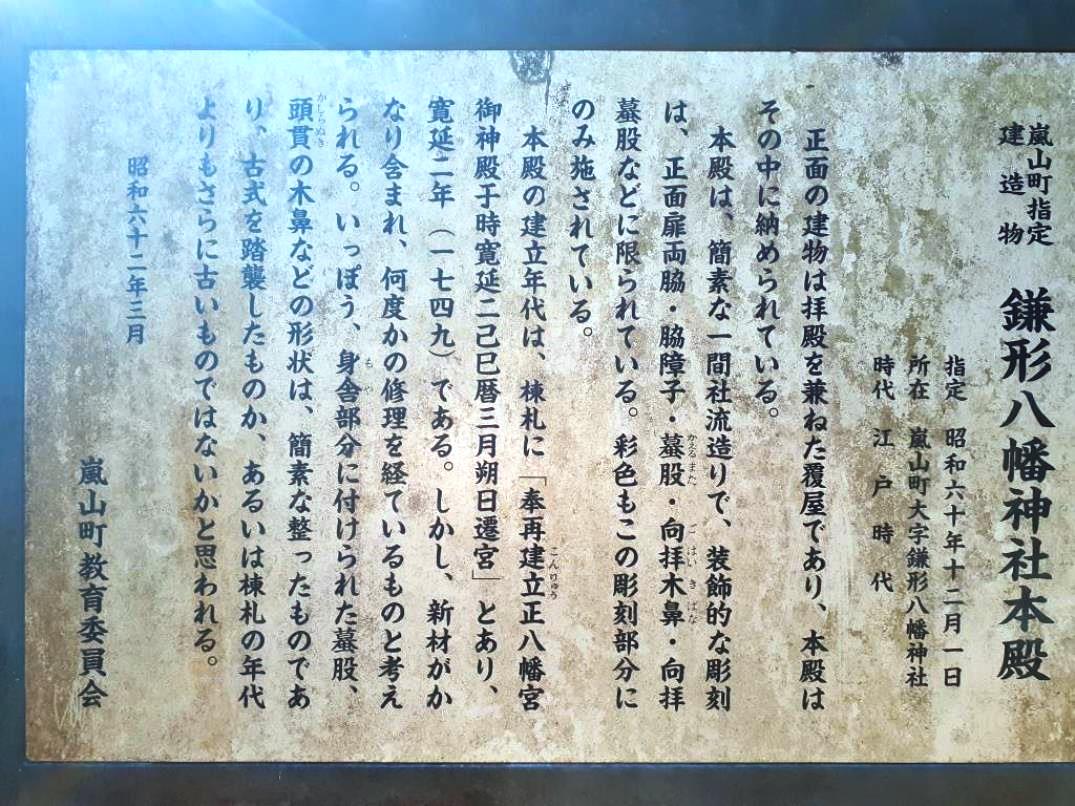 嵐山町指定
建造物
鎌形八幡神社本殿
指定 昭和六十年十二月一日
所在 嵐山町大字鎌形八幡神社
時代 江戸時代
正面の建物は拝殿を兼ねた覆屋であり、本殿は
その中に納められている。
本殿は、簡素な一間社流造りで、装飾的な彫刻
は、正面扉両脇・脇障子・蟇股・向拝木鼻・向拝
蟇股などに限られている。彩色もこの彫刻部分に
のみ施されている。
本殿の建立年代は、棟札に「奉再建立正八幡宮
御神殿于時寛延二己巳暦三月朔日遷宮」とあり、
寛延二年(一七四九)である。しかし、新材がか
なり含まれ、何度かの修理を経ているものと考え
られる。いっぽう、身舎部分に付けられた蟇股、
頭貫の木鼻などの形状は、簡素な整ったものであ
り、古式を踏襲したものか、あるいは棟札の年代
よりもさらに古いものではないかと思われる。
昭和六十二年三月
嵐山町教育委員会